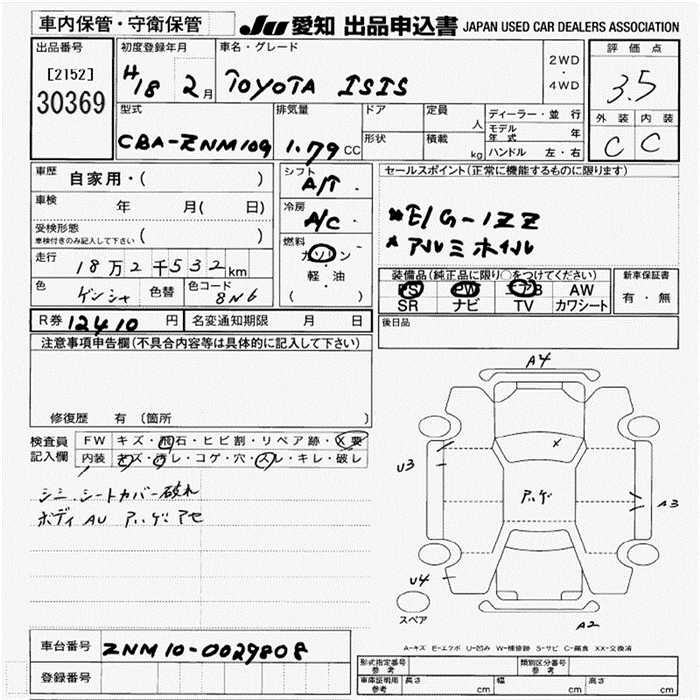 車内保管・守衛保管 JU 愛知 出品申込書 JAPAN USED CAR DEALERS ASSOCIATION
出品番号 初度登録年月 車名・グレード 2WD・4WD 評価点
[2152] H18 2月 TOYOTA ISIS 3.5
30369
型式 排気量 ドア 定員 人 ディーラー・並行 外装 内装
CBA-ZNM10G 1.79 CC 形状 積載 kg モデル年式 年 C C
ハンドル 左・右
車歴 自家用・( ) シフト A/T セールスポイント(正常に機能するものに限ります)
車検 年 月( 日) 冷房 A/C *E/G-1ZZ
受検形態 ( ) *アルミホイル
車検付きのみ記入して下さい
燃料 ガソリン・軽・油 ( )
走行 18万2千532km 装備品(純正品に限り○をつけてください) 新車保証書
PS PW エアB AW 有・無
色 ゲンシャ 色替 色コード 8N6 SR ナビ TV カワシート
R券 12410 円 名変通知期限 月 日 後日品
注意事項申告欄(不具合内容等は具体的に記入して下さい)
修復歴 有 (箇所
検査員 FW キズ・飛石・ヒビ割・リペア跡・X要
記入欄 内装 キズ・汚レ・コゲ・穴・スレ・キレ・破レ
シミ、シートカバー破れ
ボディ AU アハゲ アセ
A4
X
U3
アハゲ
A3
U4
スペア
A2
A-キズ E-エクボ U-凹み W-補修跡 S-サビ C-腐食 XX-交換済
車台番号 ZNM10-0029808
登録番号
形式指定番号 参考 類別区分番号 参考
車庫証明用 参考 長さ cm 幅 cm 高さ cm